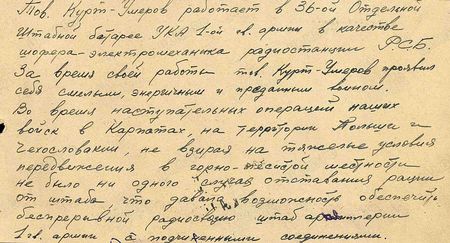 Тов. Курт-Умеров работает в 36-ой Отдельной
Штабной батарее УКА 1-ой гв. армии в качестве
шофера-электромеханика радиостанции РСБ.
За время своей работы тов. Курт-Умеров проявил
себя смелым, энергичным и преданным воином.
Во время наступательных операций наших
войск в Карпатах, на территории Польши и
Чехословакии, не взирая на тяжелые условия
передвижения в горно-лесистой местности
не было ни одного случая отставания рации
от штаба, что давало возможность обеспечить
беспрерывной радиосвязью штаб артиллерии
1 гв. армии с подчиненными соединениями.